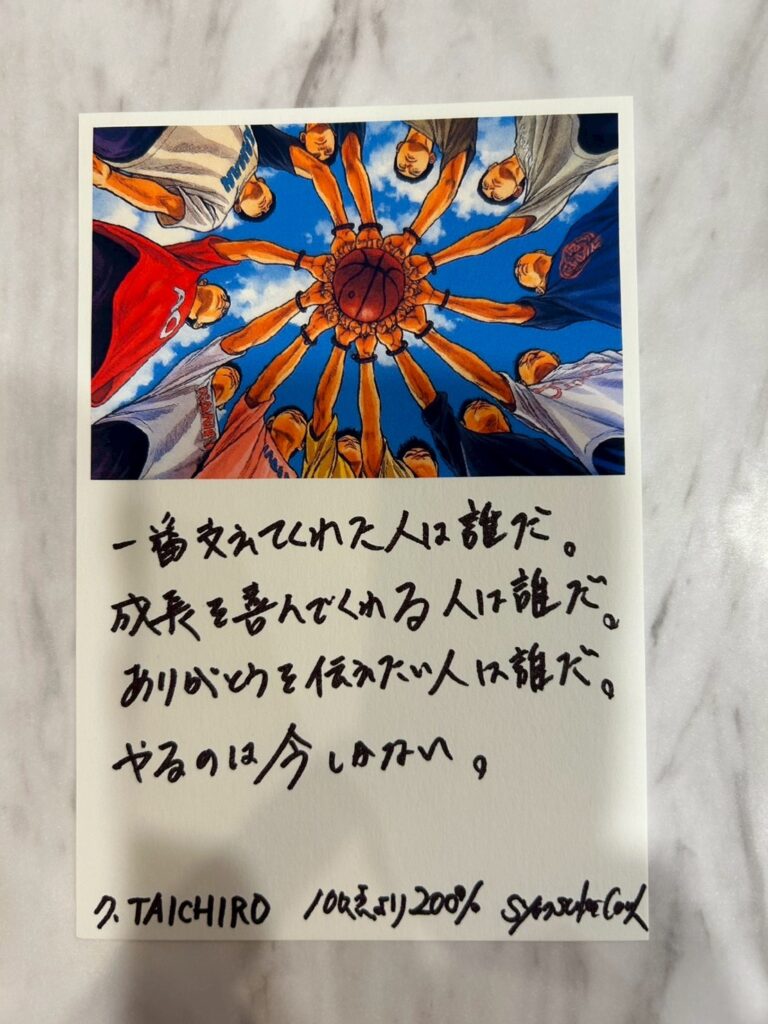 一番支えてくれた人は誰だ。
成長を喜んでくれる人は誰だ。
ありがとうを伝えたい人は誰だ。
やるのは今しかない。
7. TAICHIRO 100点より200%